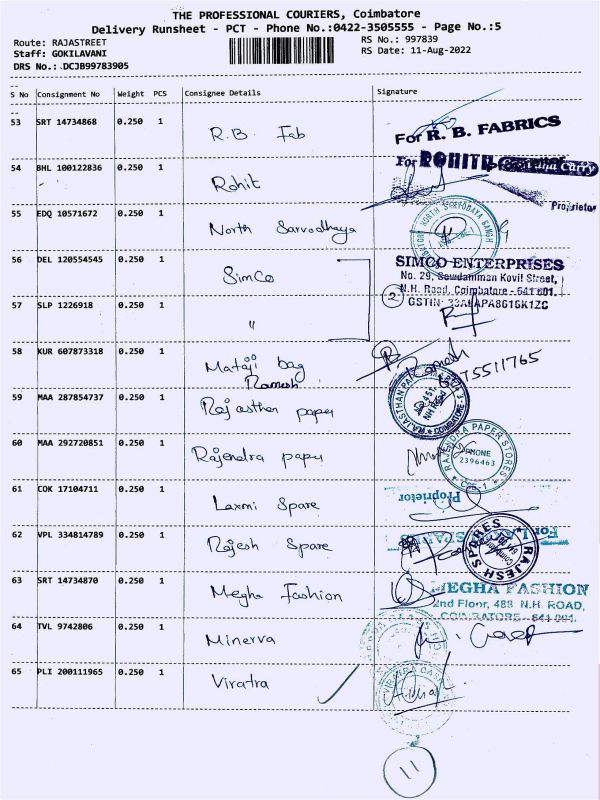 THE PROFESSIONAL COURIERS, Coimbatore
Delivery Runsheet - PCT - Phone No.:0422-3505555 - Page No.:5
Route: RAJASTREET
RS No.: 997839
Staff: GOKILAVANI
RS Date: 11-Aug-2022
DRS No.: DCJB99783905
S No Consignment No Weight PCS Consignee Details Signature
53 SRT 14734868 0.250 1 R.B. Fab
For R. B. FABRICS
54 BHL 100122836 0.250 1 Rohit
For ROHITH
Proprietor
55 EDQ 10571672 0.250 1 North Sarvodhaya
NORTH SARVODAYA SANGH
56 DEL 120554545 0.250 1 SimCo
SIMCO ENTERPRISES
No. 29, Sowdamman Kovil Street,
N.H. Road, Coimbatore - 641 001.
2 GSTIN: 33AEAPA8616K1ZC
57 SLP 1226918 0.250 1 "
58 KUR 607873318 0.250 1 Mataji bag
Ramesh
Ramesh
59 MAA 287854737 0.250 1 Rajasthan paper
COIMBATORE
60 MAA 292720851 0.250 1 Rajendra paper
RAJENDRA PAPER STORES
PHONE
2396463
CBE-1
61 COK 17104711 0.250 1 Laxmi Spare
Proprietor
62 VPL 334814789 0.250 1 Rajesh Spare
RAJESH SPARES
63 SRT 14734870 0.250 1 Megha Fashion
MEGHA FASHION
2nd Floor, 488 N.H. ROAD,
COIMBATORE - 641 001.
64 TVL 9742806 0.250 1 Minerva
65 PLI 200111965 0.250 1 Viratra
11